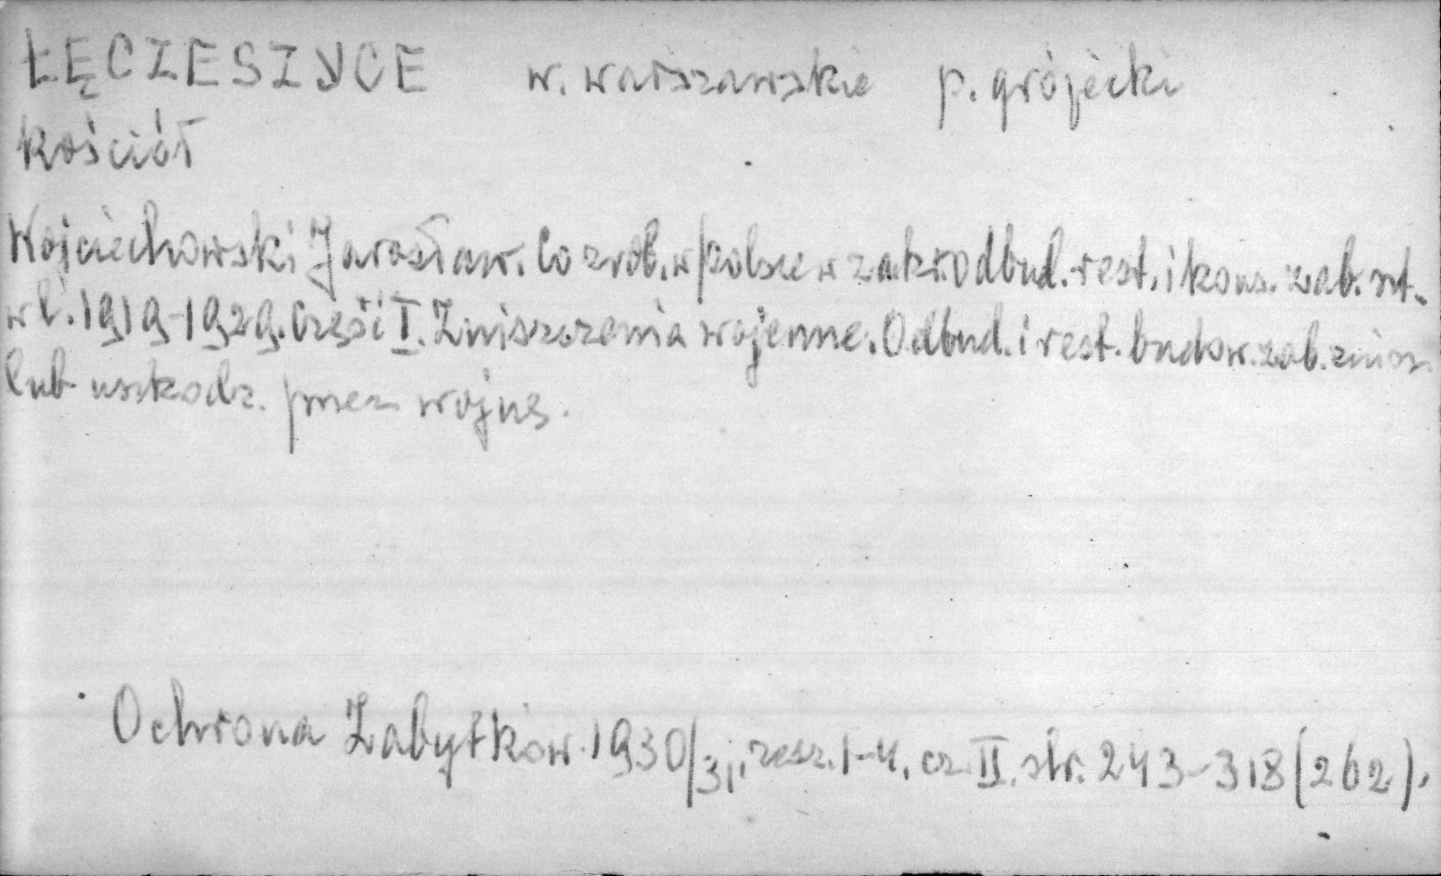 ŁĘCZESZYCE w. warszawskie p. grójecki
Kościół
Wojciechowski Jarosław. Co zrob. w Polsce w zakr. odbud. rest. i kons. zab. szt.
w l. 1919-1929. Część I. Zniszczenia wojenne. Odbud. i rest. budow. zab. znisz.
lub uszkodz. przez wojnę.
Ochrona Zabytków. 1930/31, zesz. 1-4, cz. II. str. 243-318 (262).